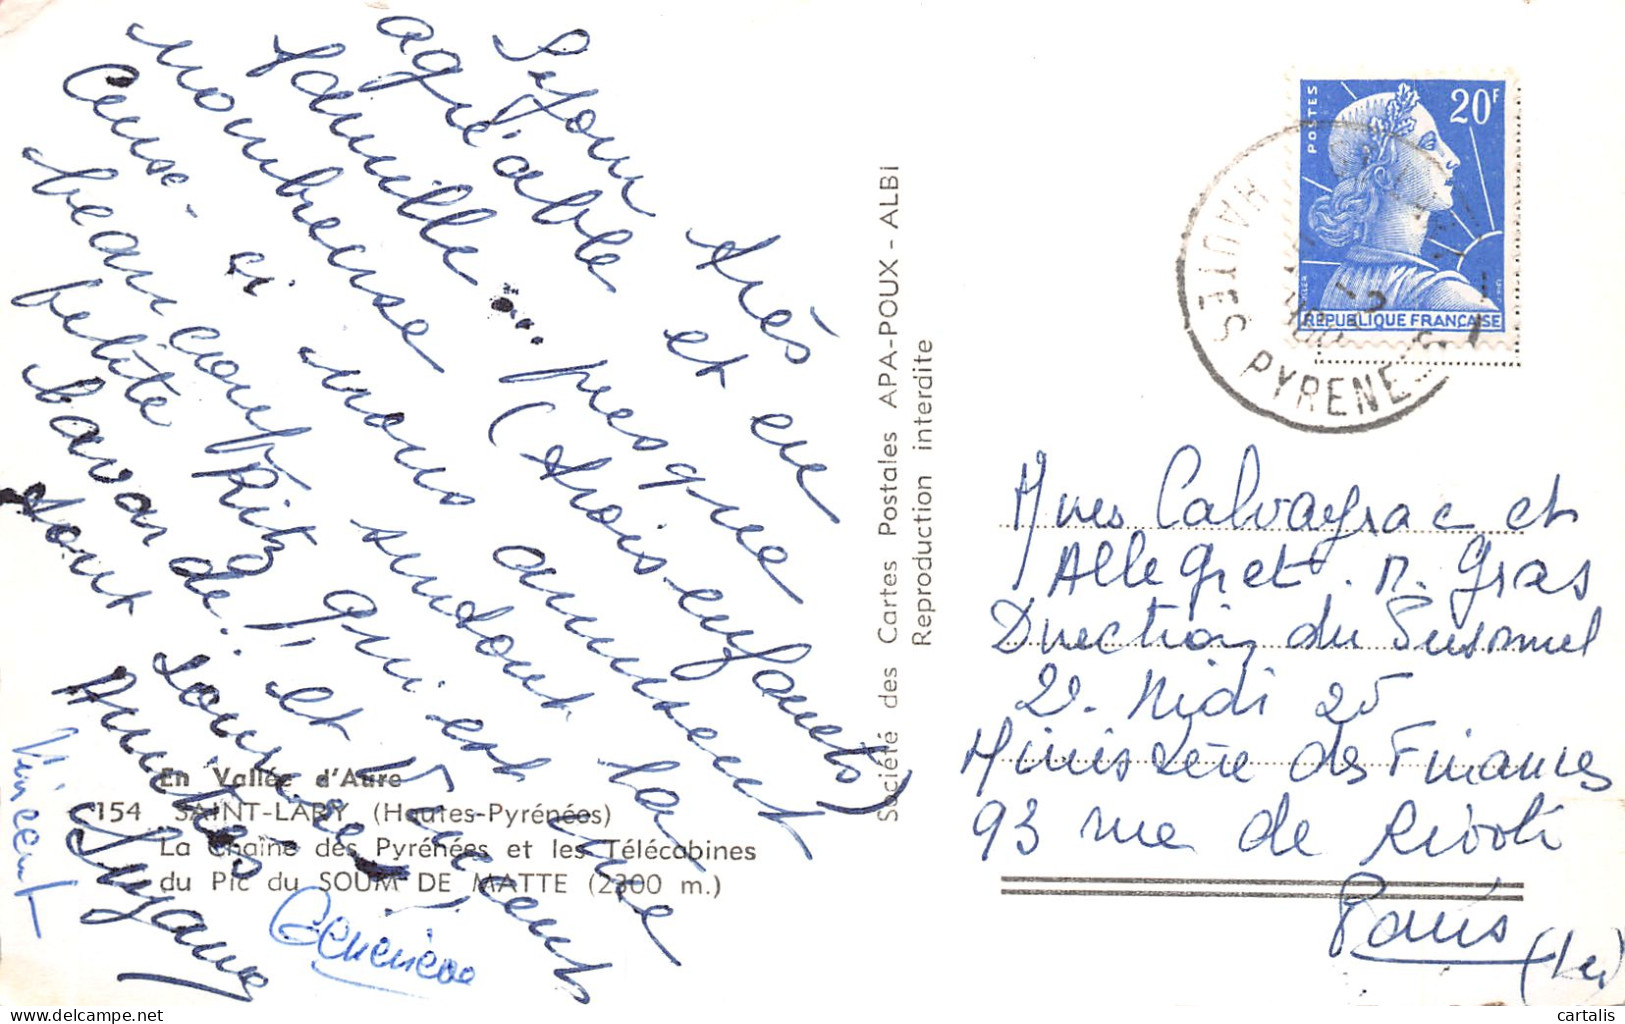 Séjour très
agréable et en
famille... presque
nombreuse (trois enfants)
Ceux-ci nous amusent
beaucoup surtout la
petite Kitz qui est une
bavarde!! et Vincent
tout sourire!
Amitiés
Suzanne
Vincent
Geneviève
En Vallée d'Aure
154 SAINT-LARY (Hautes-Pyrénées)
La Chaîne des Pyrénées et les Télécabines
du Pic du SOUM DE MATTE (2300 m.)
Société des Cartes Postales APA-POUX - ALBI
Reproduction interdite
POSTES
20F
REPUBLIQUE FRANÇAISE
HAUTES PYRENEES
Mmes Calvayrac et
Allegret. M. Gras
Direction du Personnel
2e. Midi 25
Ministère des Finances
93 rue de Rivoli
Paris
(1er)
cartalis